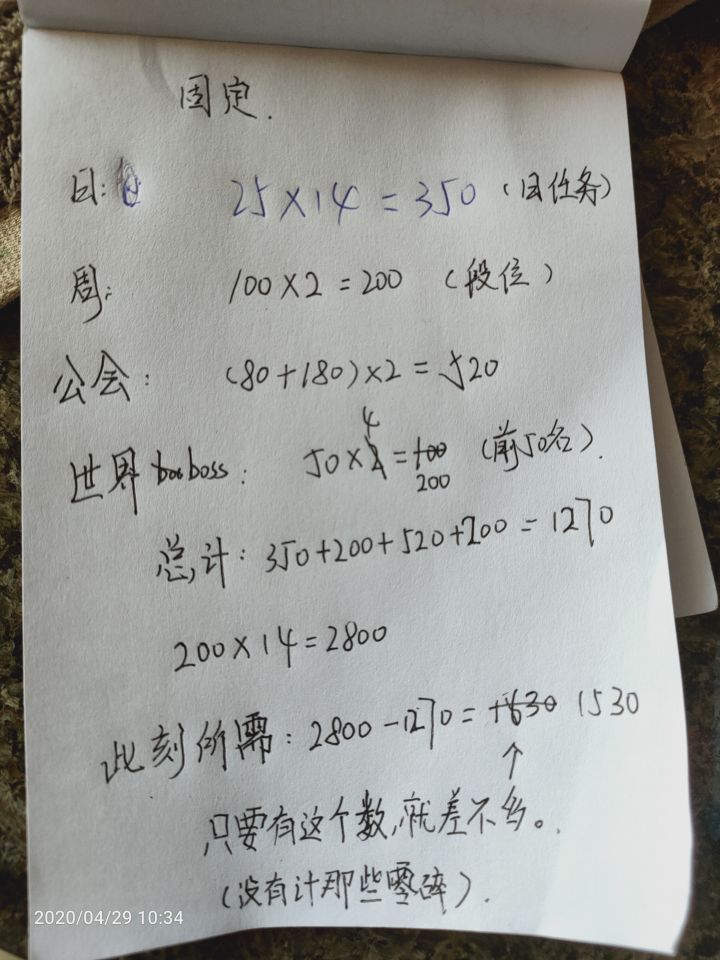 固定.
日: 25×14=350 (日任务)
周: 100×2=200 (段位)
公会: (80+180)×2=520
4
世界 boss: 50×2=100 (前50名).
200
总计: 350+200+520+200=1270
200×14=2800
此刻所需: 2800-1270=1630 1530
↑
只要有这个数,就差不多。.
(没有计那些零碎).
2020/04/29 10:34